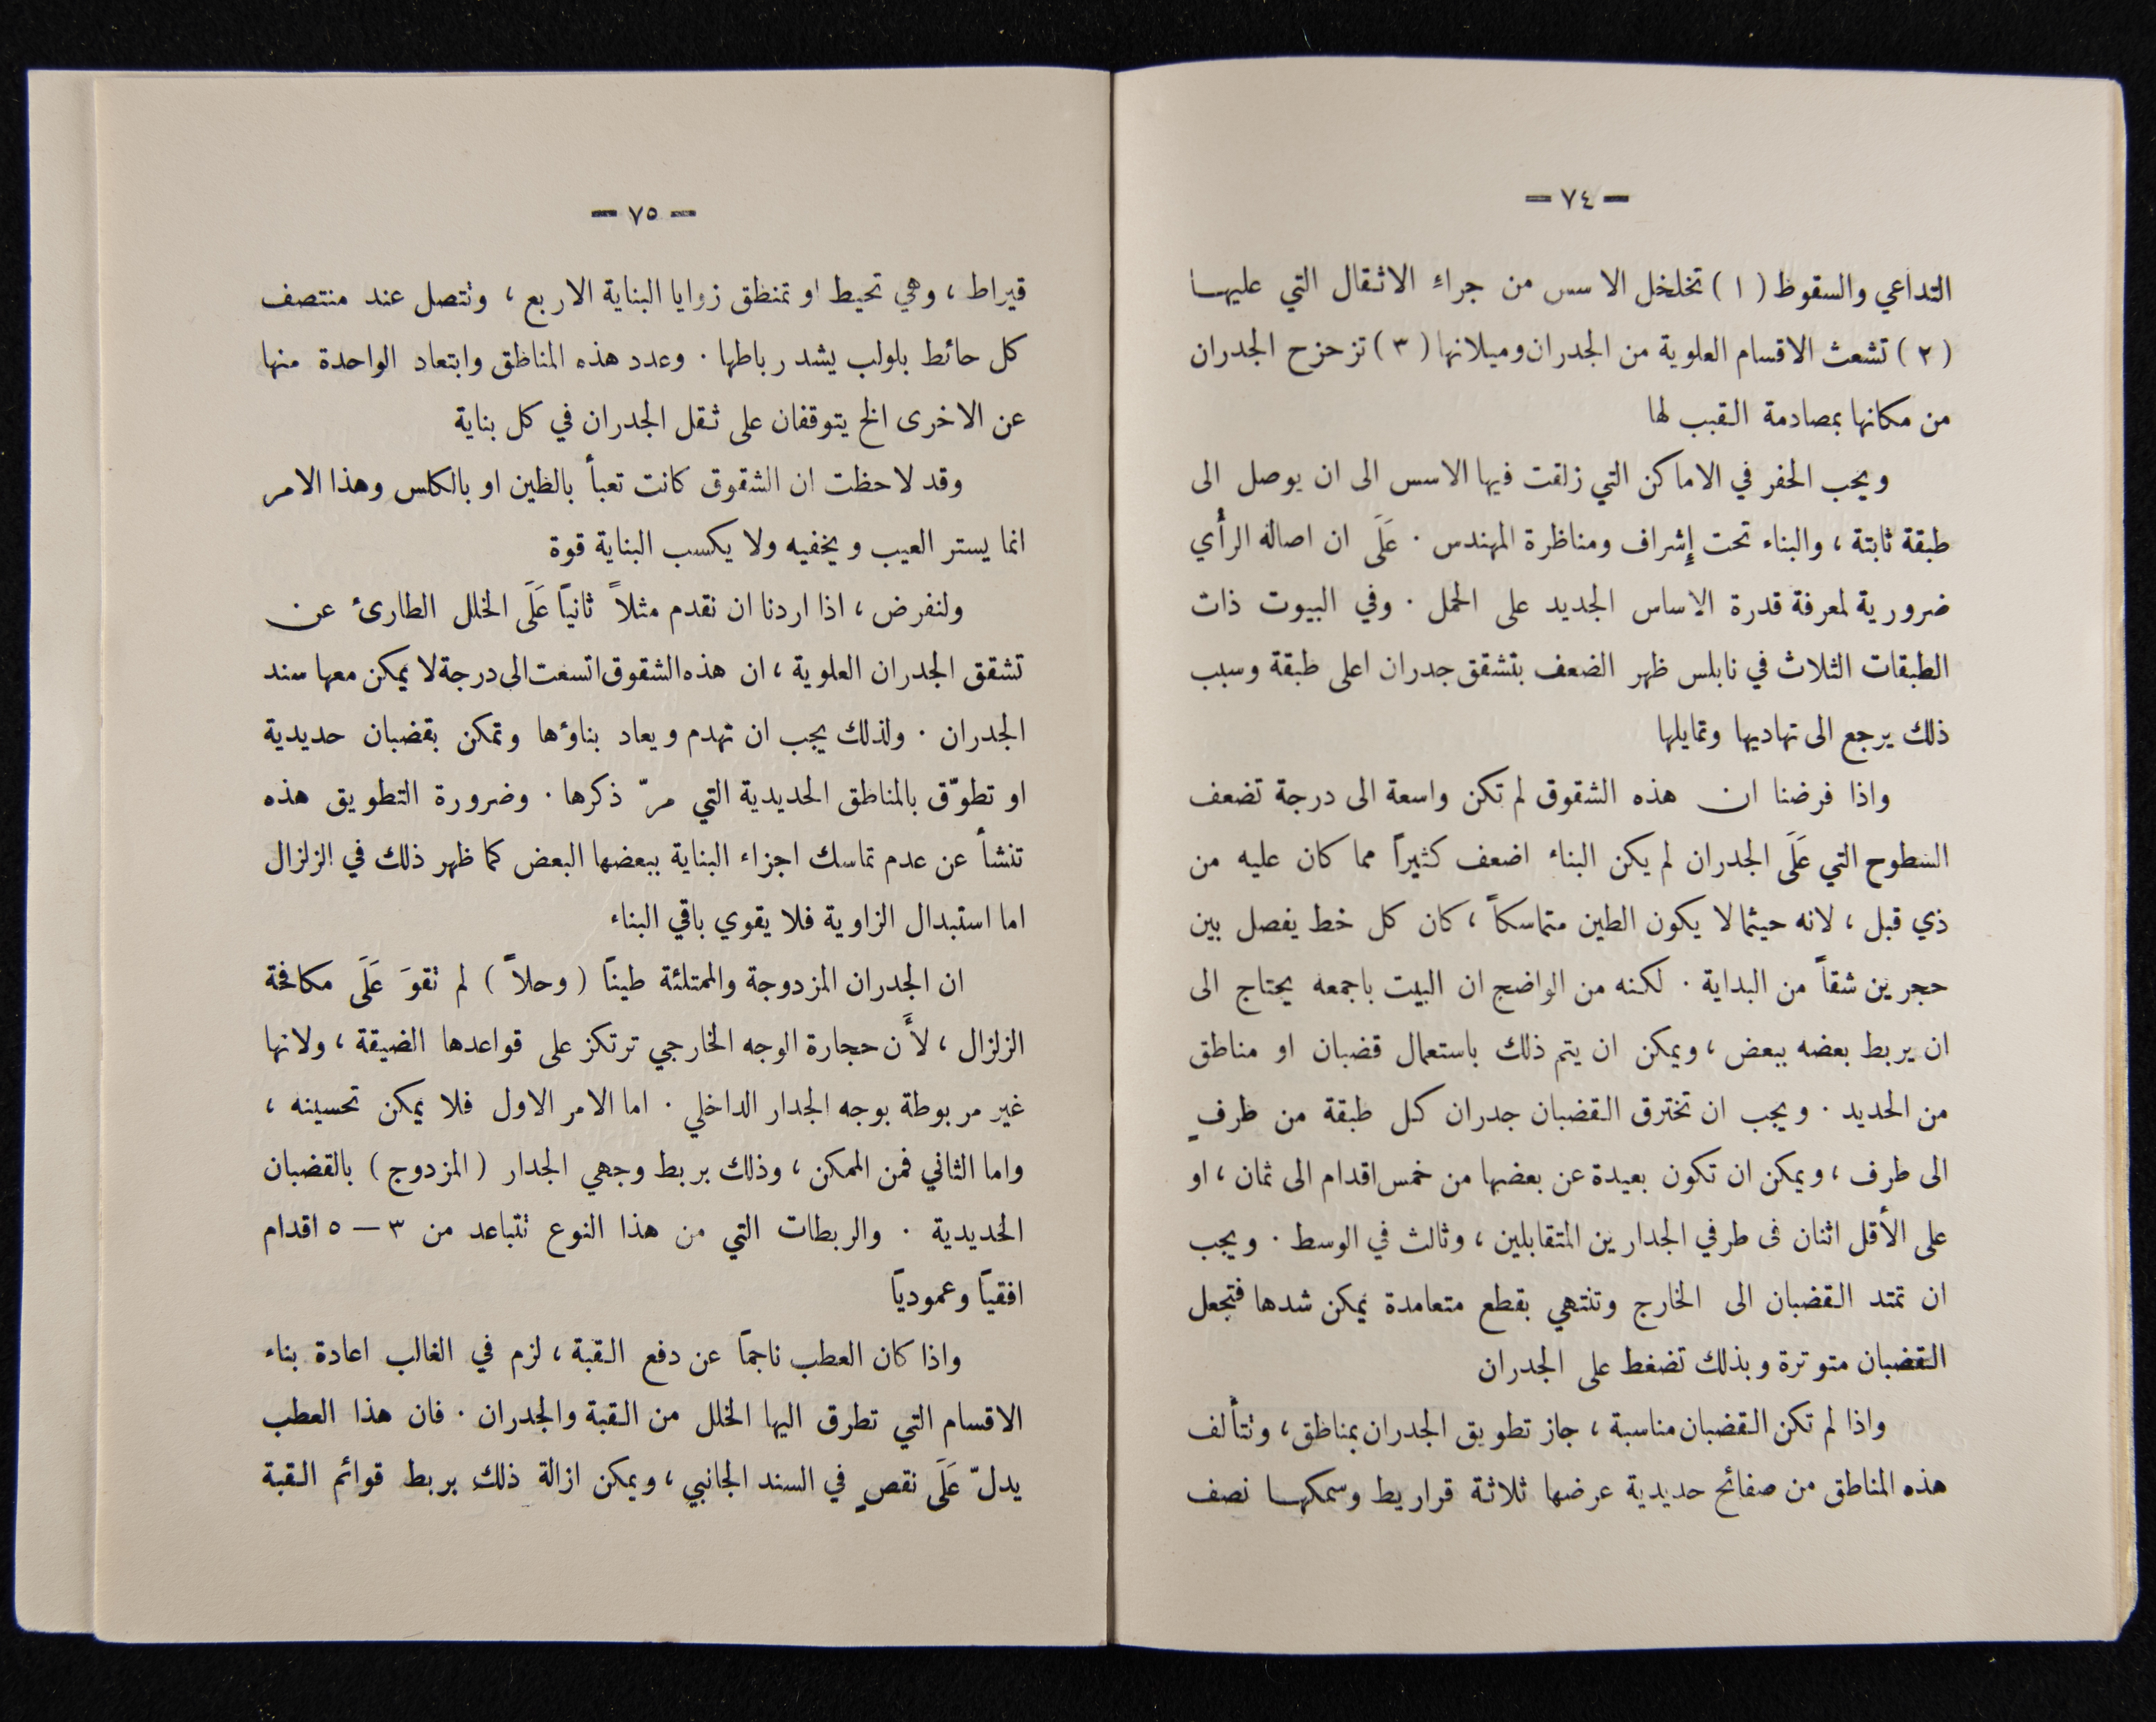 — ٧٤ —
التداعي والسقوط ( ١ ) تخلخل الاسس من جراء الاثقال التي عليها
( ٢ ) تشعث الاقسام العلوية من الجدران وميلانها ( ٣ ) تزحزح الجدران
من مكانها بمصادمة القبب لها
ويجب الحفر في الاماكن التي زلقت فيها الاسس الى ان يوصل الى
طبقة ثابتة ، والبناء تحت إشراف ومناظرة المهندس . عَلَى ان اصالة الرأي
ضرورية لمعرفة قدرة الاساس الجديد على الحمل . وفي البيوت ذات
الطبقات الثلاث في نابلس ظهر الضعف بتشقق جدران اعلى طبقة وسبب
ذلك يرجع الى تهاديها وتمايلها
واذا فرضنا ان هذه الشقوق لم تكن واسعة الى درجة تضعف
السطوح التي عَلَى الجدران لم يكن البناء اضعف كثيراً مما كان عليه من
ذي قبل ، لانه حيثما لا يكون الطين متماسكاً ، كان كل خط يفصل بين
حجرين شقاً من البداية . لكنه من الواضح ان البيت باجمعه يحتاج الى
ان يربط بعضه ببعض ، ويمكن ان يتم ذلك باستعمال قضبان او مناطق
من الحديد . ويجب ان تخترق القضبان جدران كل طبقة من طرفٍ
الى طرف ، ويمكن ان تكون بعيدة عن بعضها من خمس اقدام الى ثمان ، او
على الأقل اثنان فى طرفي الجدارين المتقابلين ، وثالث في الوسط . ويجب
ان تمتد القضبان الى الخارج وتنتهي بقطع متعامدة يمكن شدها فتجعل
القضبان متوترة وبذلك تضغط على الجدران
واذا لم تكن القضبان مناسبة ، جاز تطويق الجدران بمناطق ، وتتألف
هذه المناطق من صفائح حديدية عرضها ثلاثة قراريط وسمكها نصف
— ٧٥ —
قيراط ، وهي تحيط او تمنطق زوايا البناية الاربع ، وتتصل عند منتصف
كل حائط بلولب يشد رباطها . وعدد هذه المناطق وابتعاد الواحدة منها
عن الاخرى الخ يتوقفان على ثقل الجدران في كل بناية
وقد لاحظت ان الشقوق كانت تعبأ بالطين او بالكلس وهذا الامر
انما يستر العيب ويخفيه ولا يكسب البناية قوة
ولنفرض ، اذا اردنا ان نقدم مثلاً ثانياً عَلَى الخلل الطارئ عن
تشقق الجدران العلوية ، ان هذه الشقوق اتسعت الى درجة لا يمكن معها سند
الجدران . ولذلك يجب ان تهدم ويعاد بناؤها وتمكن بقضبان حديدية
او تطوّق بالمناطق الحديدية التي مرّ ذكرها . وضرورة التطويق هذه
تنشأ عن عدم تماسك اجزاء البناية ببعضها البعض كما ظهر ذلك في الزلزال
اما استبدال الزاوية فلا يقوي باقي البناء
ان الجدران المزدوجة والممتلئة طيناً ( وحلاً ) لم تقوَ عَلَى مكافحة
الزلزال ، لأَن حجارة الوجه الخارجي ترتكز على قواعدها الضيقة ، ولانها
غير مربوطة بوجه الجدار الداخلي . اما الامر الاول فلا يمكن تحسينه ،
واما الثاني فمن الممكن ، وذلك بربط وجهي الجدار ( المزدوج ) بالقضبان
الحديدية . والربطات التي من هذا النوع تتباعد من ٣ — ٥ اقدام
افقياً وعمودياً
واذا كان العطب ناجماً عن دفع القبة ، لزم في الغالب اعادة بناء
الاقسام التي تطرق اليها الخلل من القبة والجدران . فان هذا العطب
يدلّ عَلَى نقصٍ في السند الجانبي ، ويمكن ازالة ذلك بربط قوائم القبة